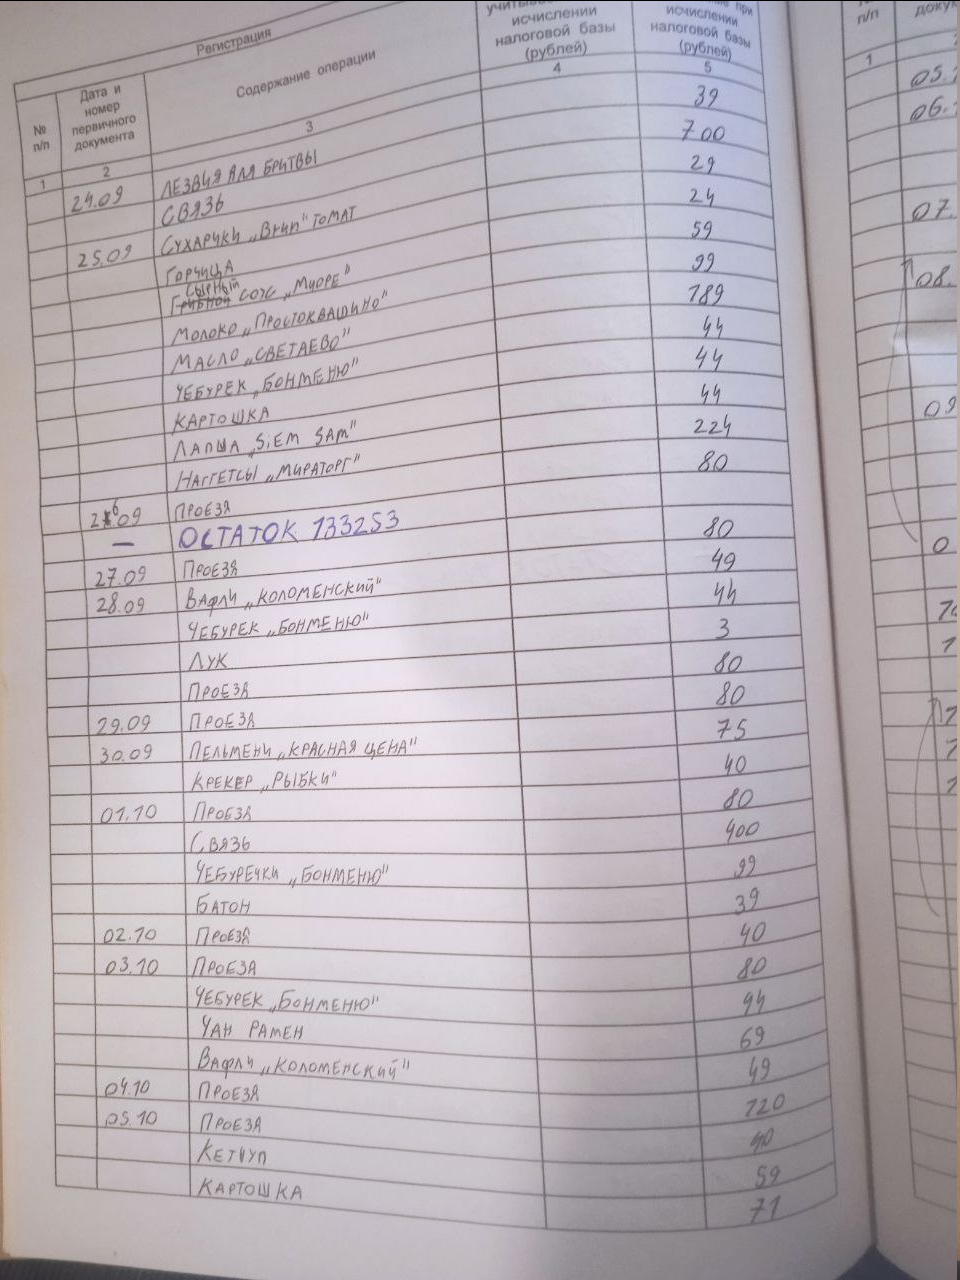 Регистрация
№ п/п
Дата и номер первичного документа
Содержание операции
исчислении налоговой базы (рублей)
при исчислении налоговой базы (рублей)
1 2 3 4 5
24.09 ЛЕЗВИЯ ДЛЯ БРИТВЫ 39
СВЯЗЬ 700
25.09 СУХАРИКИ „ВКИП" ТОМАТ 29
ГОРЧИЦА 24
СЫРНЫЙ
ГРИБНОЙ СОУС „МИОРЕ" 59
МОЛОКО „ПРОСТОКВАШИНО" 99
МАСЛО „СВЕТАЕВО" 189
ЧЕБУРЕК „БОНМЕНЮ" 44
КАРТОШКА 44
ЛАПША „SIEM SAM" 44
НАГГЕТСЫ „МИРАТОРГ" 224
26.09 ПРОЕЗД 80
— ОСТАТОК 133253
27.09 ПРОЕЗД 80
28.09 ВАФЛИ „КОЛОМЕНСКИЙ" 49
ЧЕБУРЕК „БОНМЕНЮ" 44
ЛУК 3
ПРОЕЗД 80
29.09 ПРОЕЗД 80
30.09 ПЕЛЬМЕНИ „КРАСНАЯ ЦЕНА" 75
КРЕКЕР „РЫБКИ" 40
01.10 ПРОЕЗД 80
СВЯЗЬ 400
ЧЕБУРЕЧКИ „БОНМЕНЮ" 99
БАТОН 39
02.10 ПРОЕЗД 40
03.10 ПРОЕЗД 80
ЧЕБУРЕК „БОНМЕНЮ" 44
ЧАН РАМЕН 69
ВАФЛИ „КОЛОМЕНСКИЙ" 49
04.10 ПРОЕЗД 120
05.10 ПРОЕЗД 40
КЕТЧУП 59
КАРТОШКА 71
п/п
1